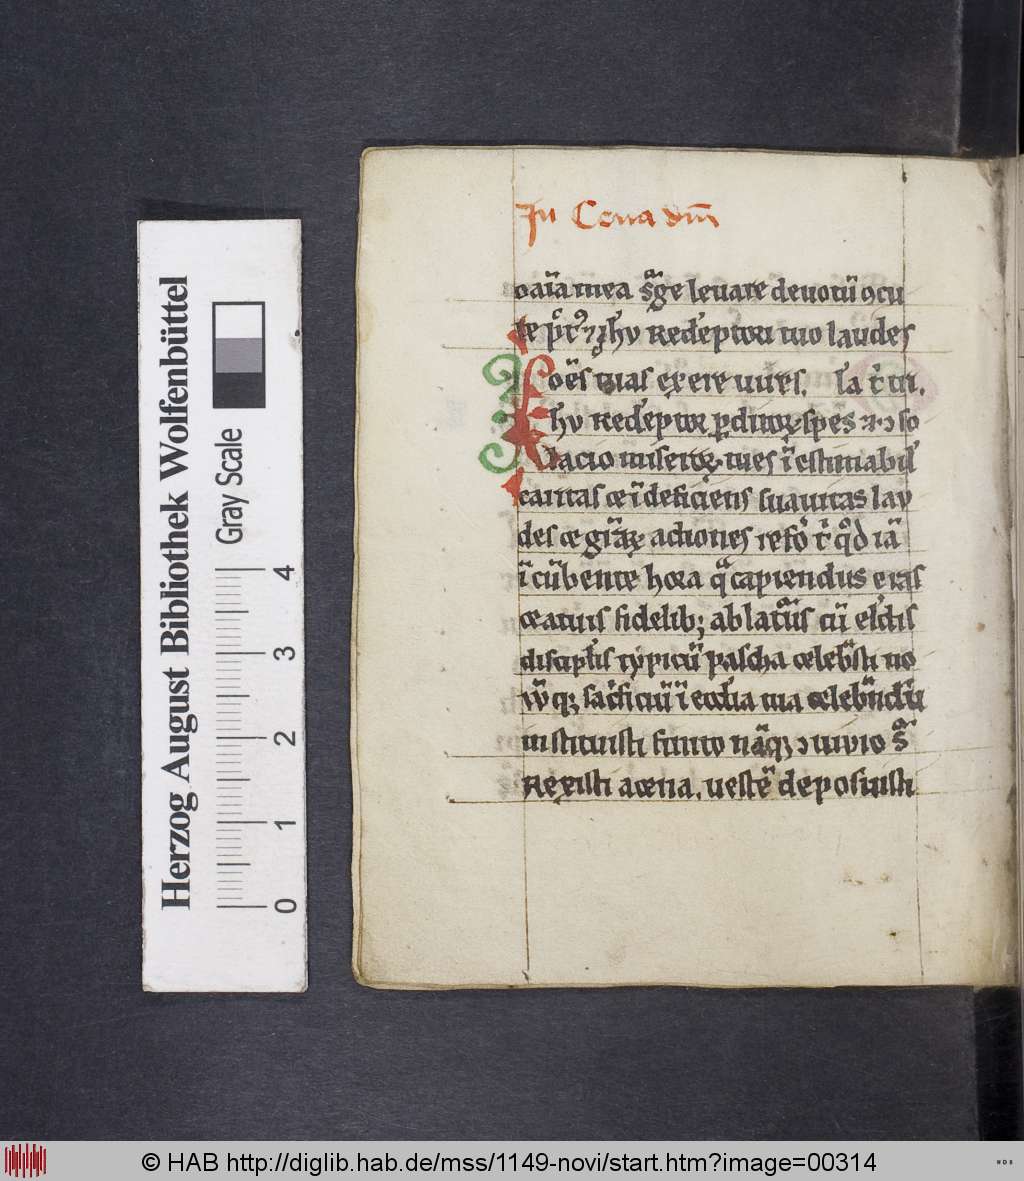 In Cena dm̄
o aīa mea sᵃge leuare deuotū ꝯcu
te p̄t ihv Redeptori tuo laudes
oēs tuas exere uires. la t̄ m.
Ihv Redeptor ꝑditoꝝ spes ꝛ ↄso
lacio miseroꝝ tues īestimabil̓
caritas ceīdeficiens suauitas lav
des ce gr̄aꝝ actiones refo t̄ qd̓ iā
īcūbente hora q̄ capiendus eras
ceatuis fidelib; ablatus cū el̓ctis
discipl̓is typicū pascha celebͣsti no
uūqꝫ sac̓ficiū ī eccl̓ia tua celebͣndū
instituisti finito nāqꝫ ↄuivio sᵃ
Rexisti acena, uestē deposuisti
Herzog August Bibliothek Wolfenbüttel
Gray Scale
0 1 2 3 4
© HAB http://diglib.hab.de/mss/1149-novi/start.htm?image=00314